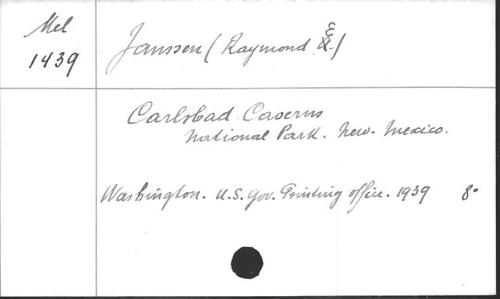 Mel
1439
Janssen (Raymond E.)
Carlsbad Caverns
National Park. New. Mexico.
Washington. U.S. Gov. Printing office. 1939 8°